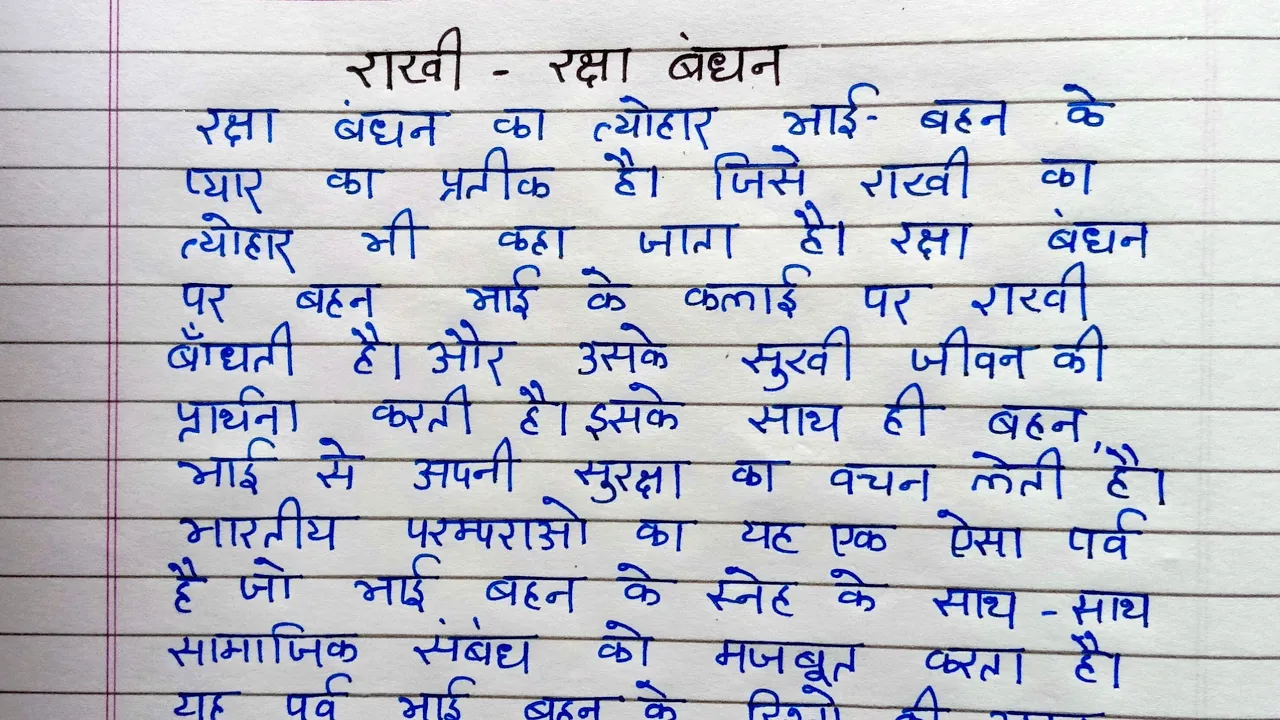 राखी - रक्षा बंधन
रक्षा बंधन का त्योहार भाई- बहन के
प्यार का प्रतीक है। जिसे राखी का
त्योहार भी कहा जाता है। रक्षा बंधन
पर बहन भाई के कलाई पर राखी
बाँधती है। और उसके सुखी जीवन की
प्रार्थना करती है। इसके साथ ही बहन,
भाई से अपनी सुरक्षा का वचन लेती है।
भारतीय परम्पराओ का यह एक ऐसा पर्व
है जो भाई बहन के स्नेह के साथ - साथ
सामाजिक संबंध को मजबूत करता है।
यह पर्व भाई बहन के